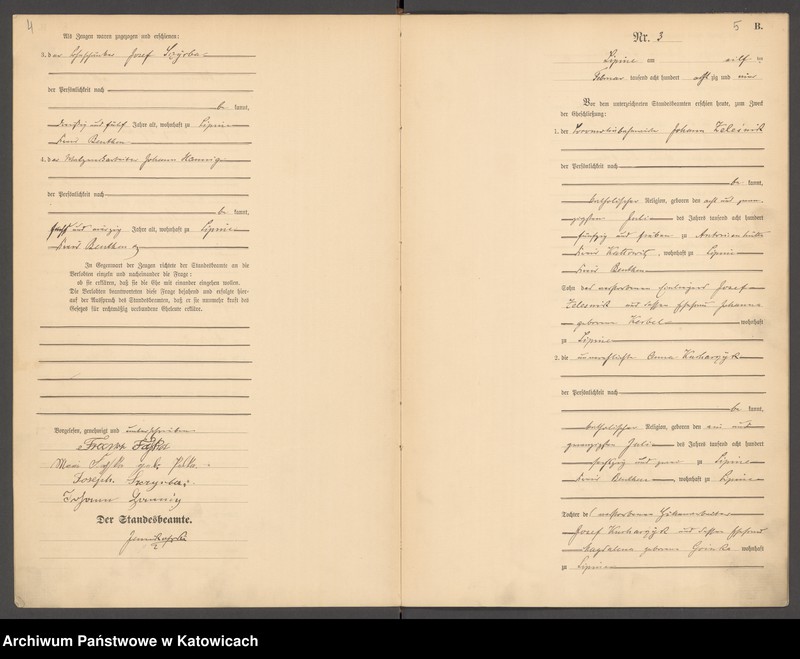 4
Als Zeugen waren zugezogen und erschienen:
3. der Josef Szyrba
der Persönlichkeit nach
be kannt,
dreißig und fünf Jahre alt, wohnhaft zu Lipine
Kreis Beuthen
4. der Walzwerkarbeiter Johann Hannig
der Persönlichkeit nach
be kannt,
fünf und vierzig Jahre alt, wohnhaft zu Lipine
Kreis Beuthen
In Gegenwart der Zeugen richtete der Standesbeamte an die
Verlobten einzeln und nacheinander die Frage:
ob sie erklären, daß sie die Ehe mit einander eingehen wollen.
Die Verlobten beantworteten diese Frage bejahend und erfolgte hier-
auf der Ausspruch des Standesbeamten, daß er sie nunmehr kraft des
Gesetzes für rechtmäßig verbundene Eheleute erkläre.
Vorgelesen, genehmigt und unterschrieben
Franz
geb.
Joseph Szyrba
Johann Hannig
Der Standesbeamte.
5
B.
Nr. 3
Lipine am elf ten
Februar tausend acht hundert acht zig und vier
Vor dem unterzeichneten Standesbeamten erschien heute, zum Zweck
der Eheschließung:
1. der Johann Zelesnik
der Persönlichkeit nach
be kannt,
katholischer Religion, geboren den acht und zwan-
zigsten Juli des Jahres tausend acht hundert
fünfzig und sieben zu Antonienhütte
Kreis Kattowitz, wohnhaft zu Lipine
Kreis Beuthen
Sohn des verstorbenen Josef
Zelesnik und dessen Ehefrau Johanna
geborene wohnhaft
zu Lipine
2. die unverehelichte Anna Kucharzyk
der Persönlichkeit nach
be kannt,
katholischer Religion, geboren den ein und
zwanzigsten Juli des Jahres tausend acht hundert
sechszig und zwei zu Lipine
Kreis Beuthen, wohnhaft zu Lipine
Tochter des verstorbenen Hüttenarbeiter
Josef Kucharzyk und dessen Ehefrau
Magdalena geborene wohnhaft
zu Lipine
Archiwum Państwowe w Katowicach